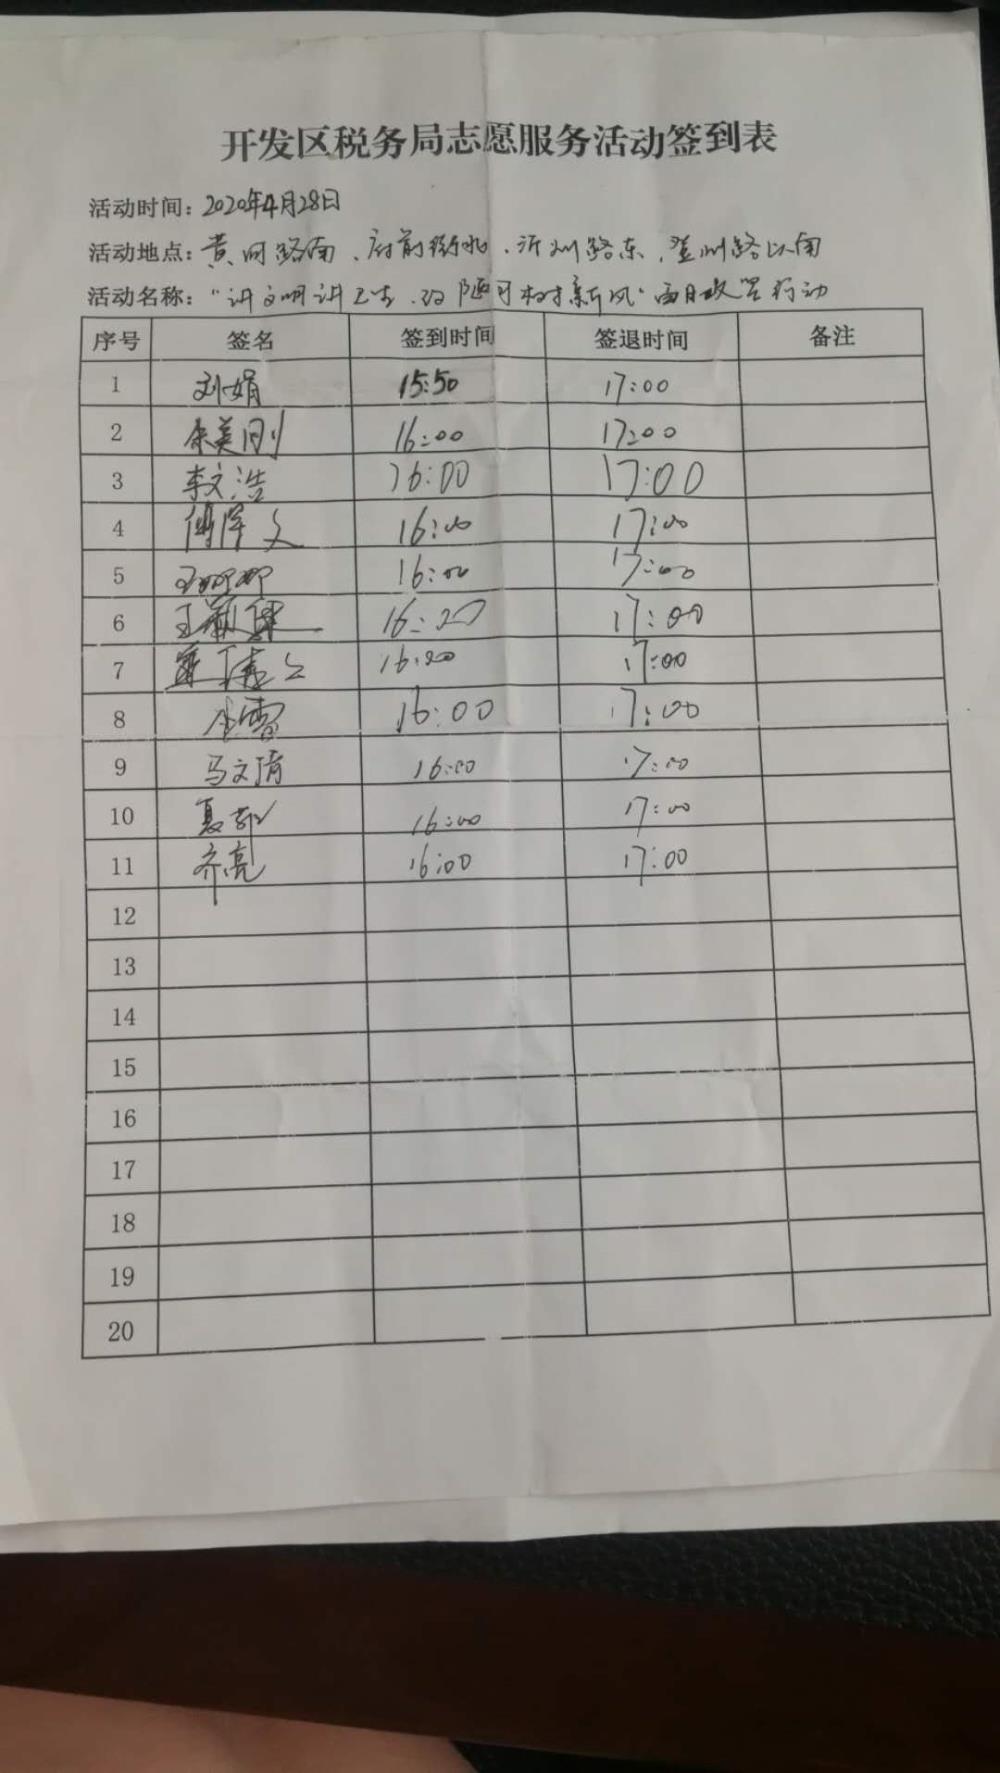 开发区税务局志愿服务活动签到表
活动时间：2020年4月28日
活动地点：黄河路南、府前街北、沂州路东、登州路以南
活动名称："讲文明讲卫生、改陋习树新风"百日攻坚行动
序号 签名 签到时间 签退时间 备注
1 刘娟 15:50 17:00
2 美刚 16:00 17:00
3 李文浩 16:00 17:00
4 傅泽文 16:00 17:00
5 16:00 17:00
6 王 16:20 17:00
7 16:20 17:00
8 雪 16:00 17:00
9 马文清 16:00 17:00
10 夏 16:00 17:00
11 齐亮 16:00 17:00
12
13
14
15
16
17
18
19
20